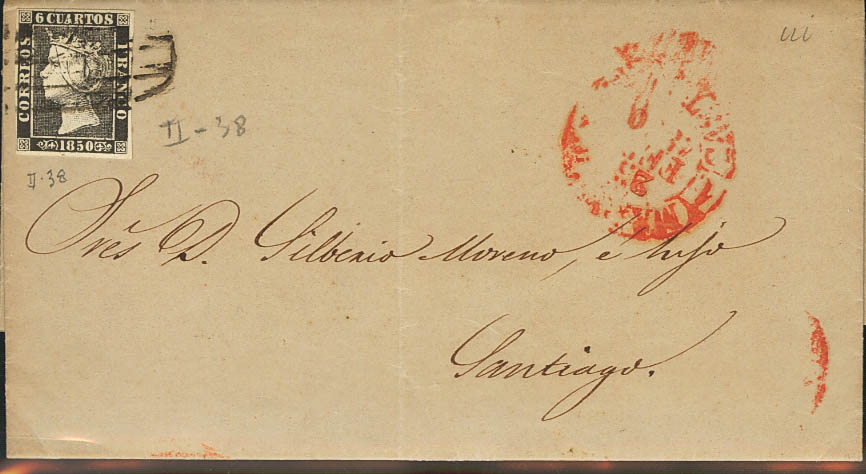 6 CUARTOS
CORREOS
FRANCO
1850
II-38
II-38
Sres D. Silberio Moreno, e hijo
Santiago.